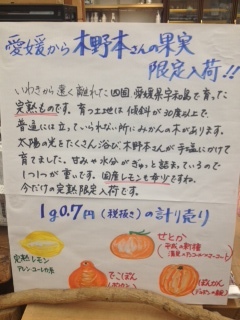 愛媛から木野本さんの果実
限定入荷!!
いわきから遠く離れた四国 愛媛県宇和島で育った
完熟ものです。育つ土地は傾斜が30度以上で、
普通には立っていられない所にみかんの木があります。
太陽の光をたくさん浴び、木野本さんが手塩にかけて
育てました。甘みや水分がぎゅっと詰まっているので
1つ1つが重いです。国産レモンも有りますね。
今だけの完熟限定入荷です。
1g0.7円(税抜き)の計り売り
せとか
(平成の新種
完熟レモン
でこぽん
ぽんかん